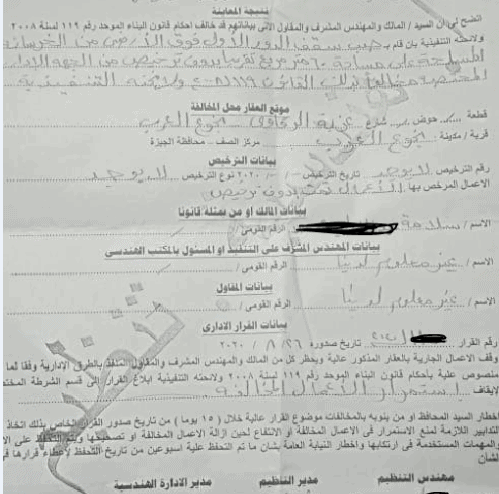 نتيجة المعاينة
اتضح لي ان السيد / المالك والمهندس المشرف والمقاول الاتي بياناتهم قد خالف احكام قانون البناء الموحد رقم ١١٩ لسنة ٢٠٠٨
ولائحته التنفيذية بان قام بـ صب سقف الدور الأول فوق الأرضي من الخرسانة
المسلحة على مساحة ٦٠ متر مربع تقريبا بدون ترخيص من الجهة الإدارية
المختصة مخالفا بذلك القانون ١١٩ لـ ٢٠٠٨ ولائحته التنفيذية
موقع العقار محل المخالفة
قطعة حوض شارع عزبة
قرية / مدينة مركز الصف - محافظة الجيزة
بيانات الترخيص
رقم الترخيص لا يوجد تاريخ الترخيص / / ٢٠٢٠ نوع الترخيص لا يوجد
الاعمال المرخص بها الأعمال تمت بدون ترخيص
بيانات المالك او من يمثله قانونا
الاسم / سلامة الرقم القومى /
بيانات المهندس المشرف على التنفيذ او المسئول بالمكتب الهندسى
الاسم / غير معلوم لدينا الرقم القومى /
بيانات المقاول
الاسم / غير معلوم لدينا الرقم القومى /
بيانات القرار الادارى
رقم القرار تاريخ صدوره ٢٦ / ٨ / ٢٠٢٠
وقف الاعمال الجارية بالعقار المذكور عالية ويحظر كل من المالك والمهندس المشرف والمقاول المنفذ بالطرق الادارية وفقا لما
منصوص علية بأحكام قانون البناء الموحد رقم ١١٩ لسنة ٢٠٠٨ ولائحته التنفيذية ابلاغ القرار إلى قسم الشرطة المخت
لايقاف استمرار الأعمال المخالفة
اخطار السيد المحافظ او من ينوبه بالمخالفات موضوع القرار عالية خلال ( ١٥ يوما ) من تاريخ صدور القرار الخاص بذلك اتخاذ
التدابير اللازمة لمنع الاستمرار فى الاعمال المخالفة او الانتفاع لحين ازالة الاعمال المخالفة او تصحيحها ويتم التحفظ على الا
والمهمات المستخدمة فى ارتكابها واخطار النيابة العامة بشان ما تم التحفظ علية اسبوعين من تاريخ التحفظ لإعطاء قرارها فى
لشأن
مهندس التنظيم مدير التنظيم مدير الادارة الهندسية